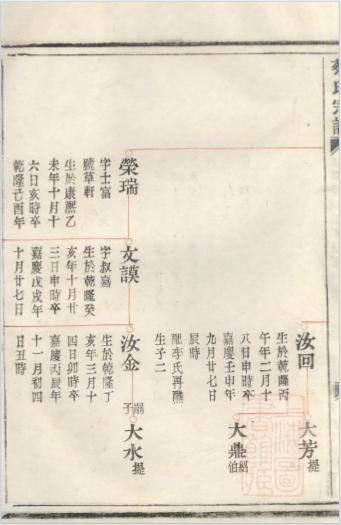 榮瑞
字士富
號草軒
生於康熙乙
未年十月十
六日亥時卒
乾隆己酉年
文謨
字叔嘉
生於乾隆癸
亥年十月廿
三日申時卒
嘉慶戊戌年
十月廿七日
汝回
生於乾隆丙
午年二月十
八日申時卒
嘉慶壬申年
九月廿七日
辰時
配李氏再醮
生子二
大芳 提
大鼎 紹伯
汝金
生於乾隆丁
亥年三月十
四日卯時卒
嘉慶丙辰年
十一月初四
日丑時
嗣子
大水 提